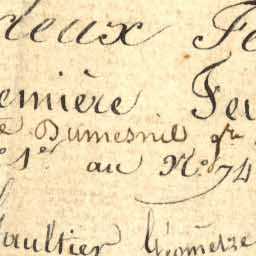 deux Fe
emière Feu
Dumesnil
° 1er au N° 74
Gaultier Géomètre